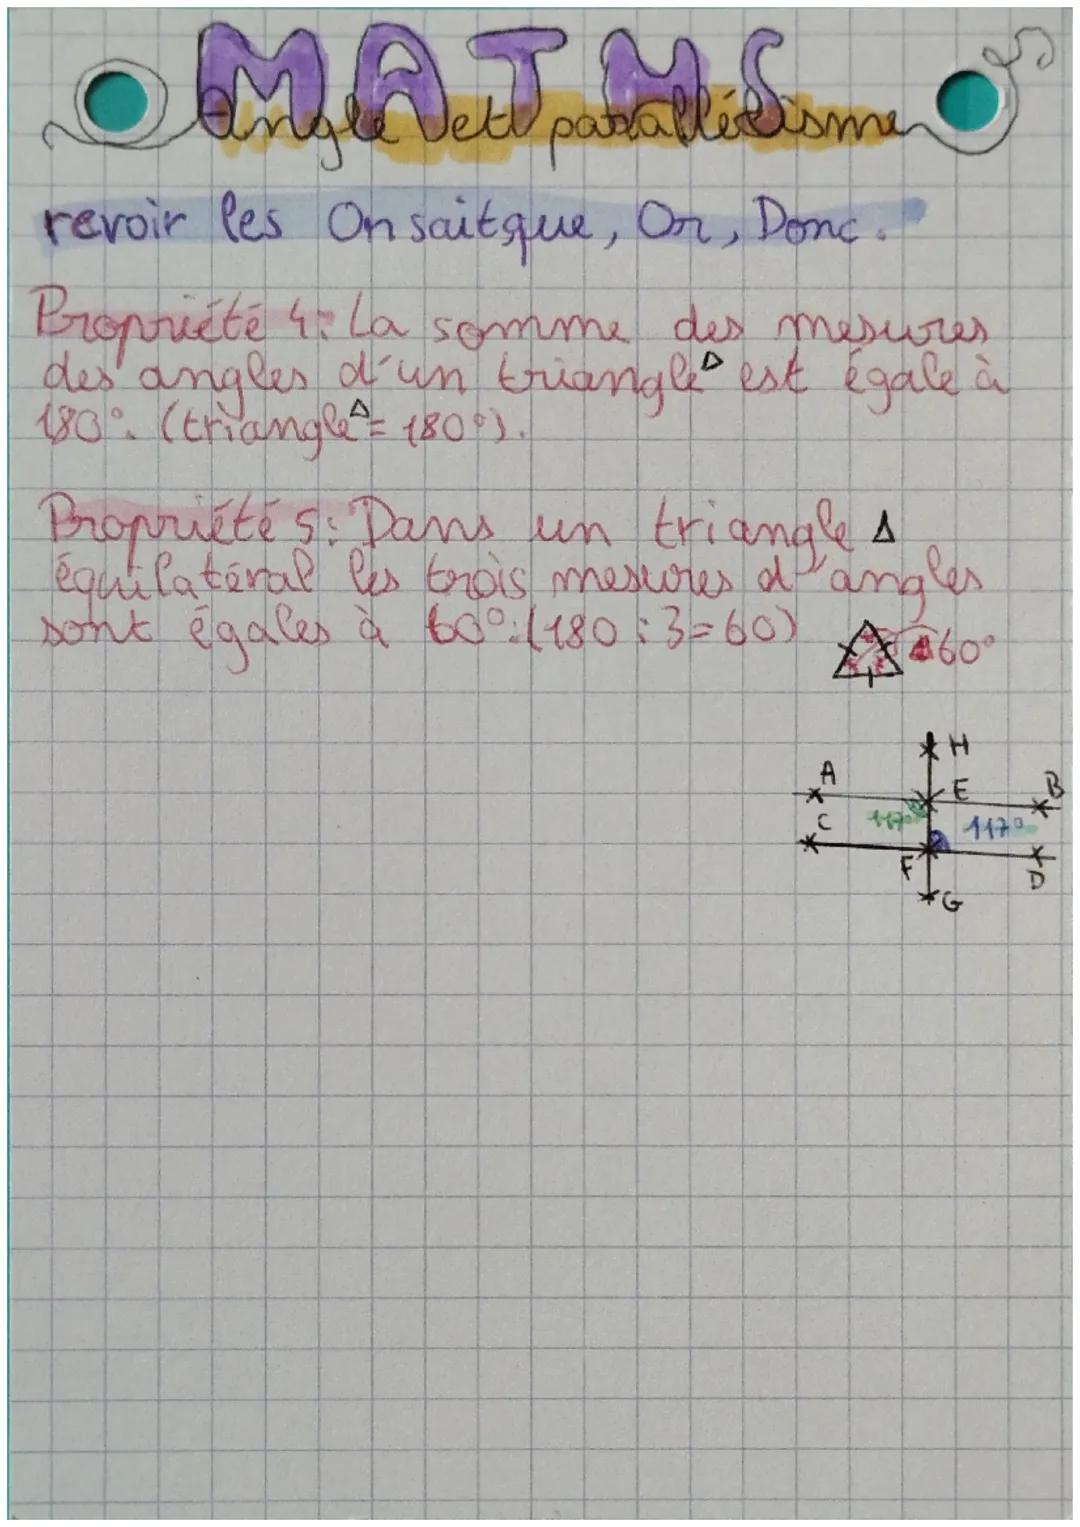 MATHS
Angle et parallélisme
revoir les On sait que, Or, Donc.
Propriété 4: La somme des mesures
des angles d'un triangle est égale à
180°. (triangle = 180°).
Propriété 5: Dans un triangle
équilatéral les trois mesures d'angles
sont égales à 60°.(180 : 3=60)
60°
H
A
E
B
C
117°
117°
F
D
G